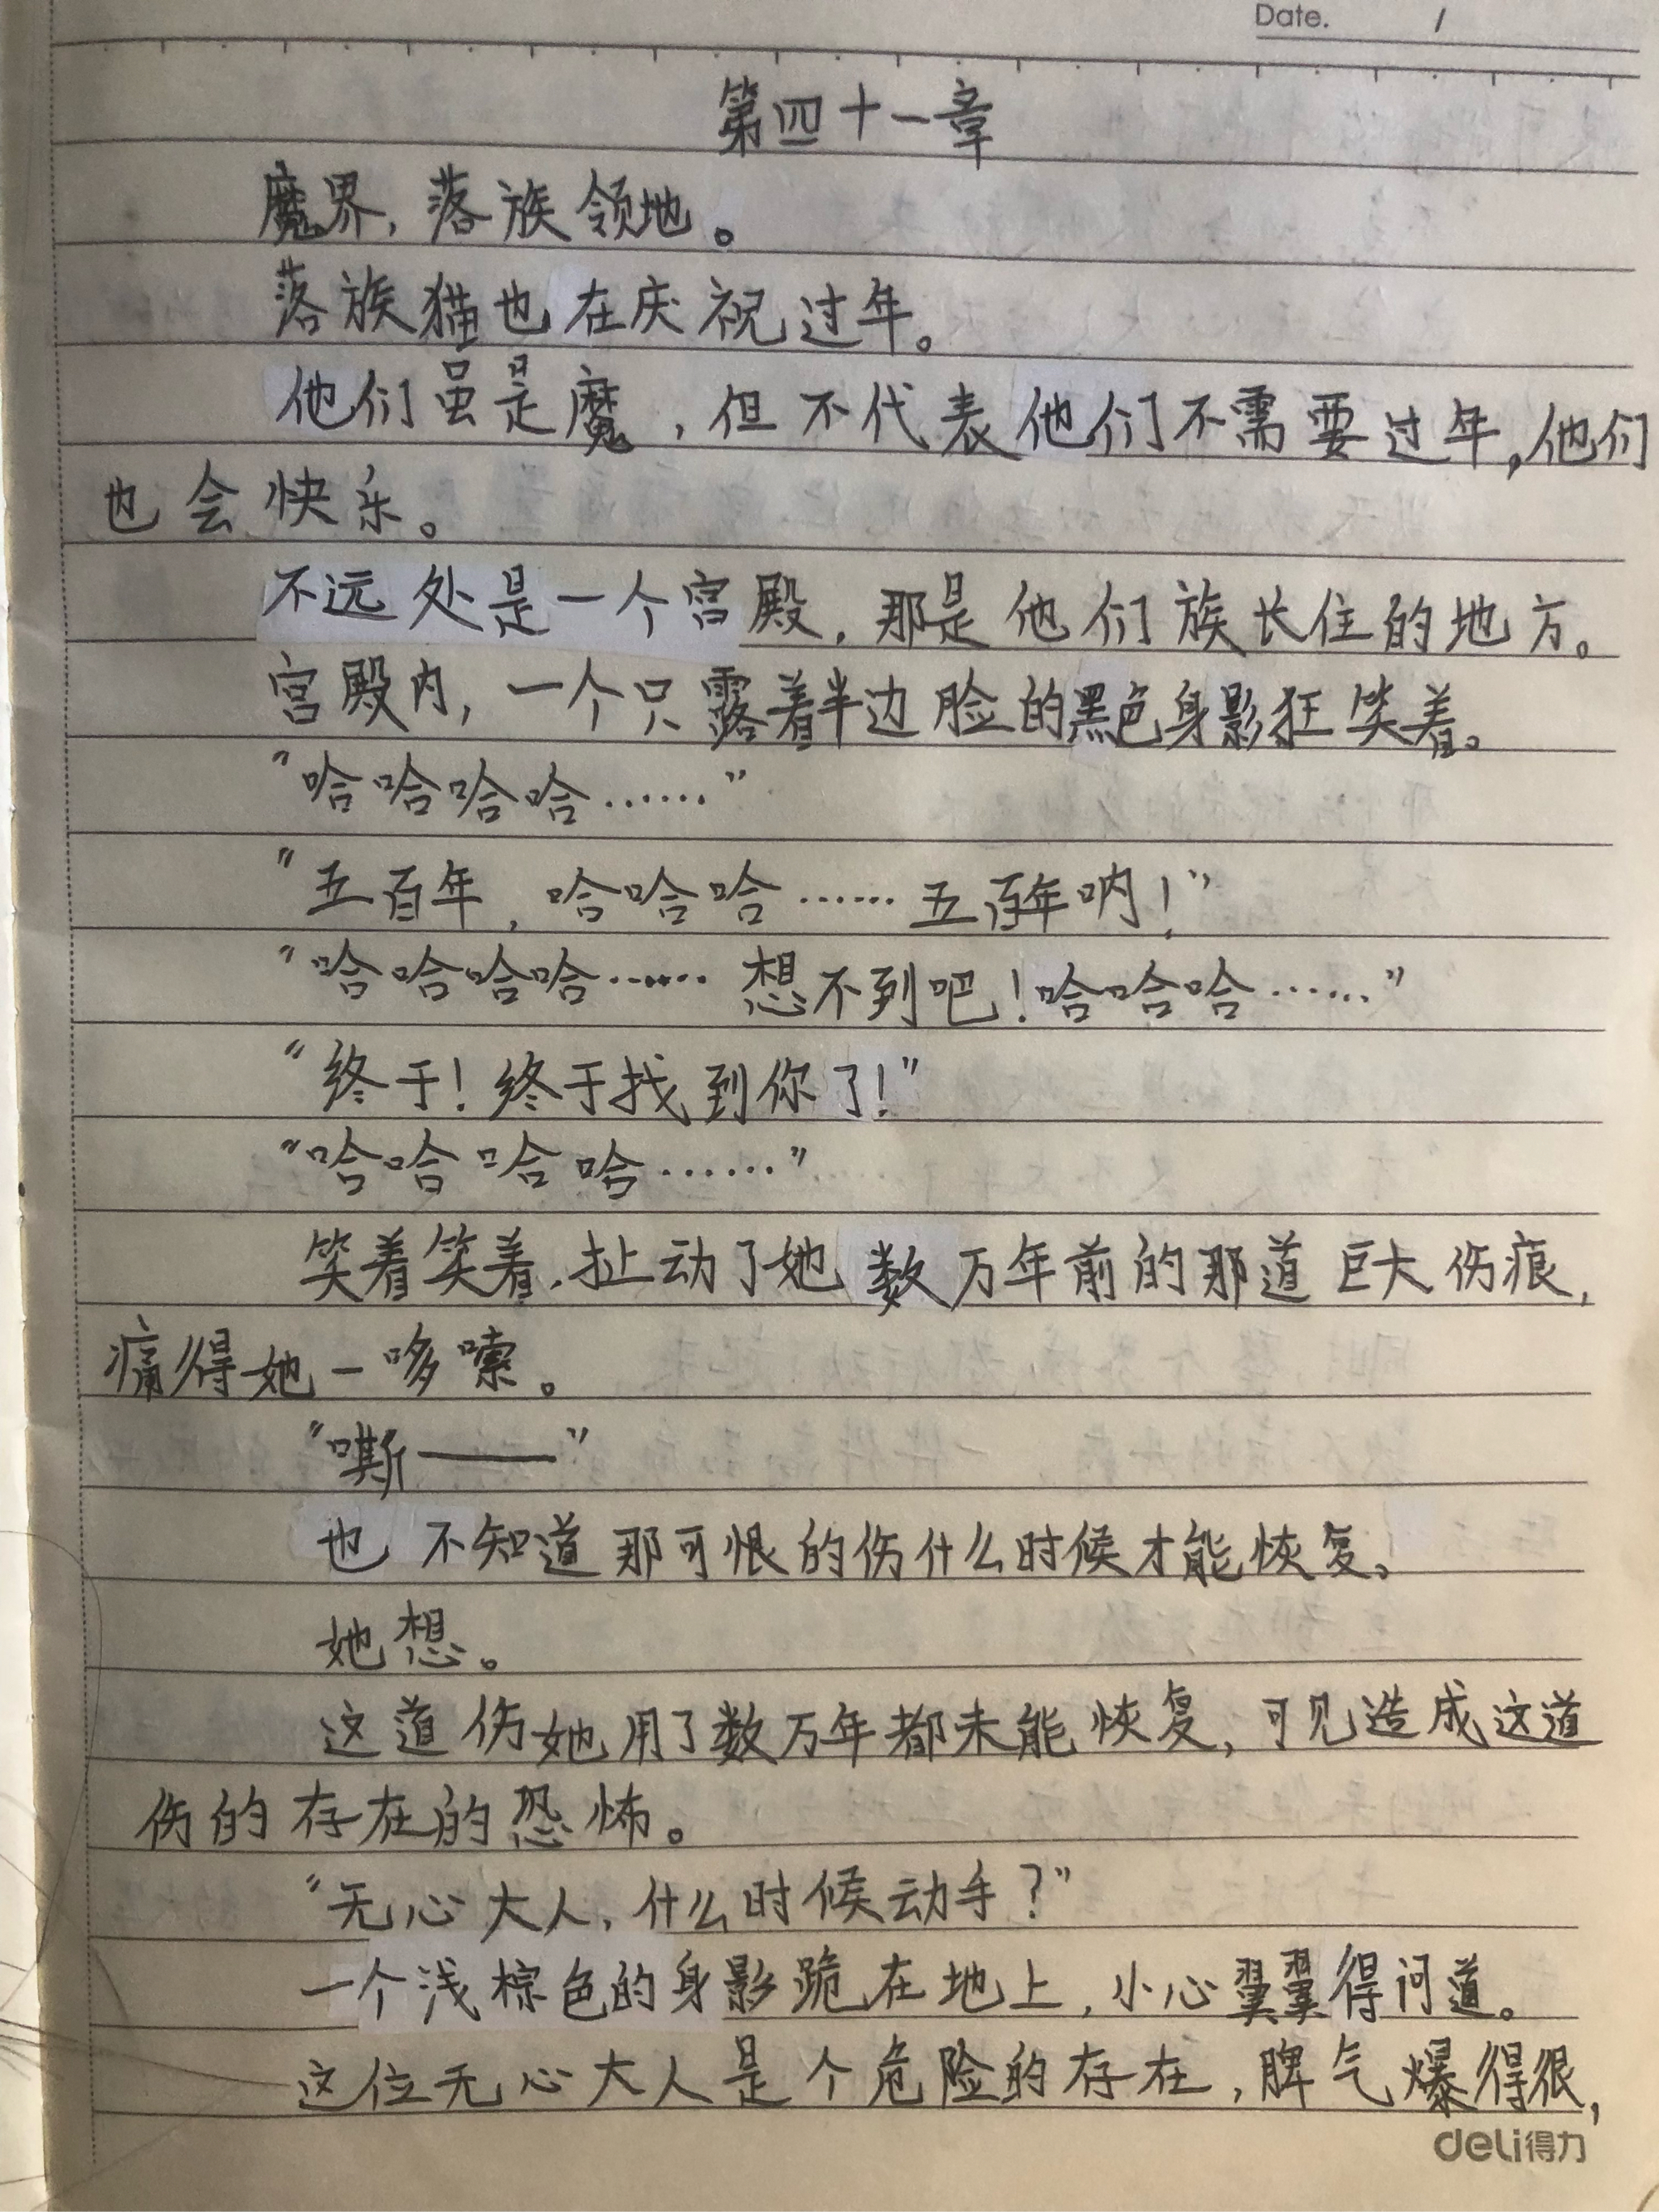 Date. /
第四十一章
魔界，落族领地。
落族猫也在庆祝过年。
他们虽是魔，但不代表他们不需要过年，他们
也会快乐。
不远处是一个宫殿，那是他们族长住的地方。
宫殿内，一个只露着半边脸的黑色身影狂笑着。
“哈哈哈哈……”
“五百年，哈哈哈……五百年呐！”
“哈哈哈哈……想不到吧！哈哈哈……”
“终于！终于找到你了！”
“哈哈哈哈……”
笑着笑着，扯动了她数万年前的那道巨大伤痕，
痛得她一哆嗦。
“嘶——”
也不知道那可恨的伤什么时候才能恢复、
她想。
这道伤她用了数万年都未能恢复，可见造成这道
伤的存在的恐怖。
“无心大人，什么时候动手？”
一个浅棕色的身影跪在地上，小心翼翼得问道。
这位无心大人是个危险的存在，脾气爆得很，
deli得力